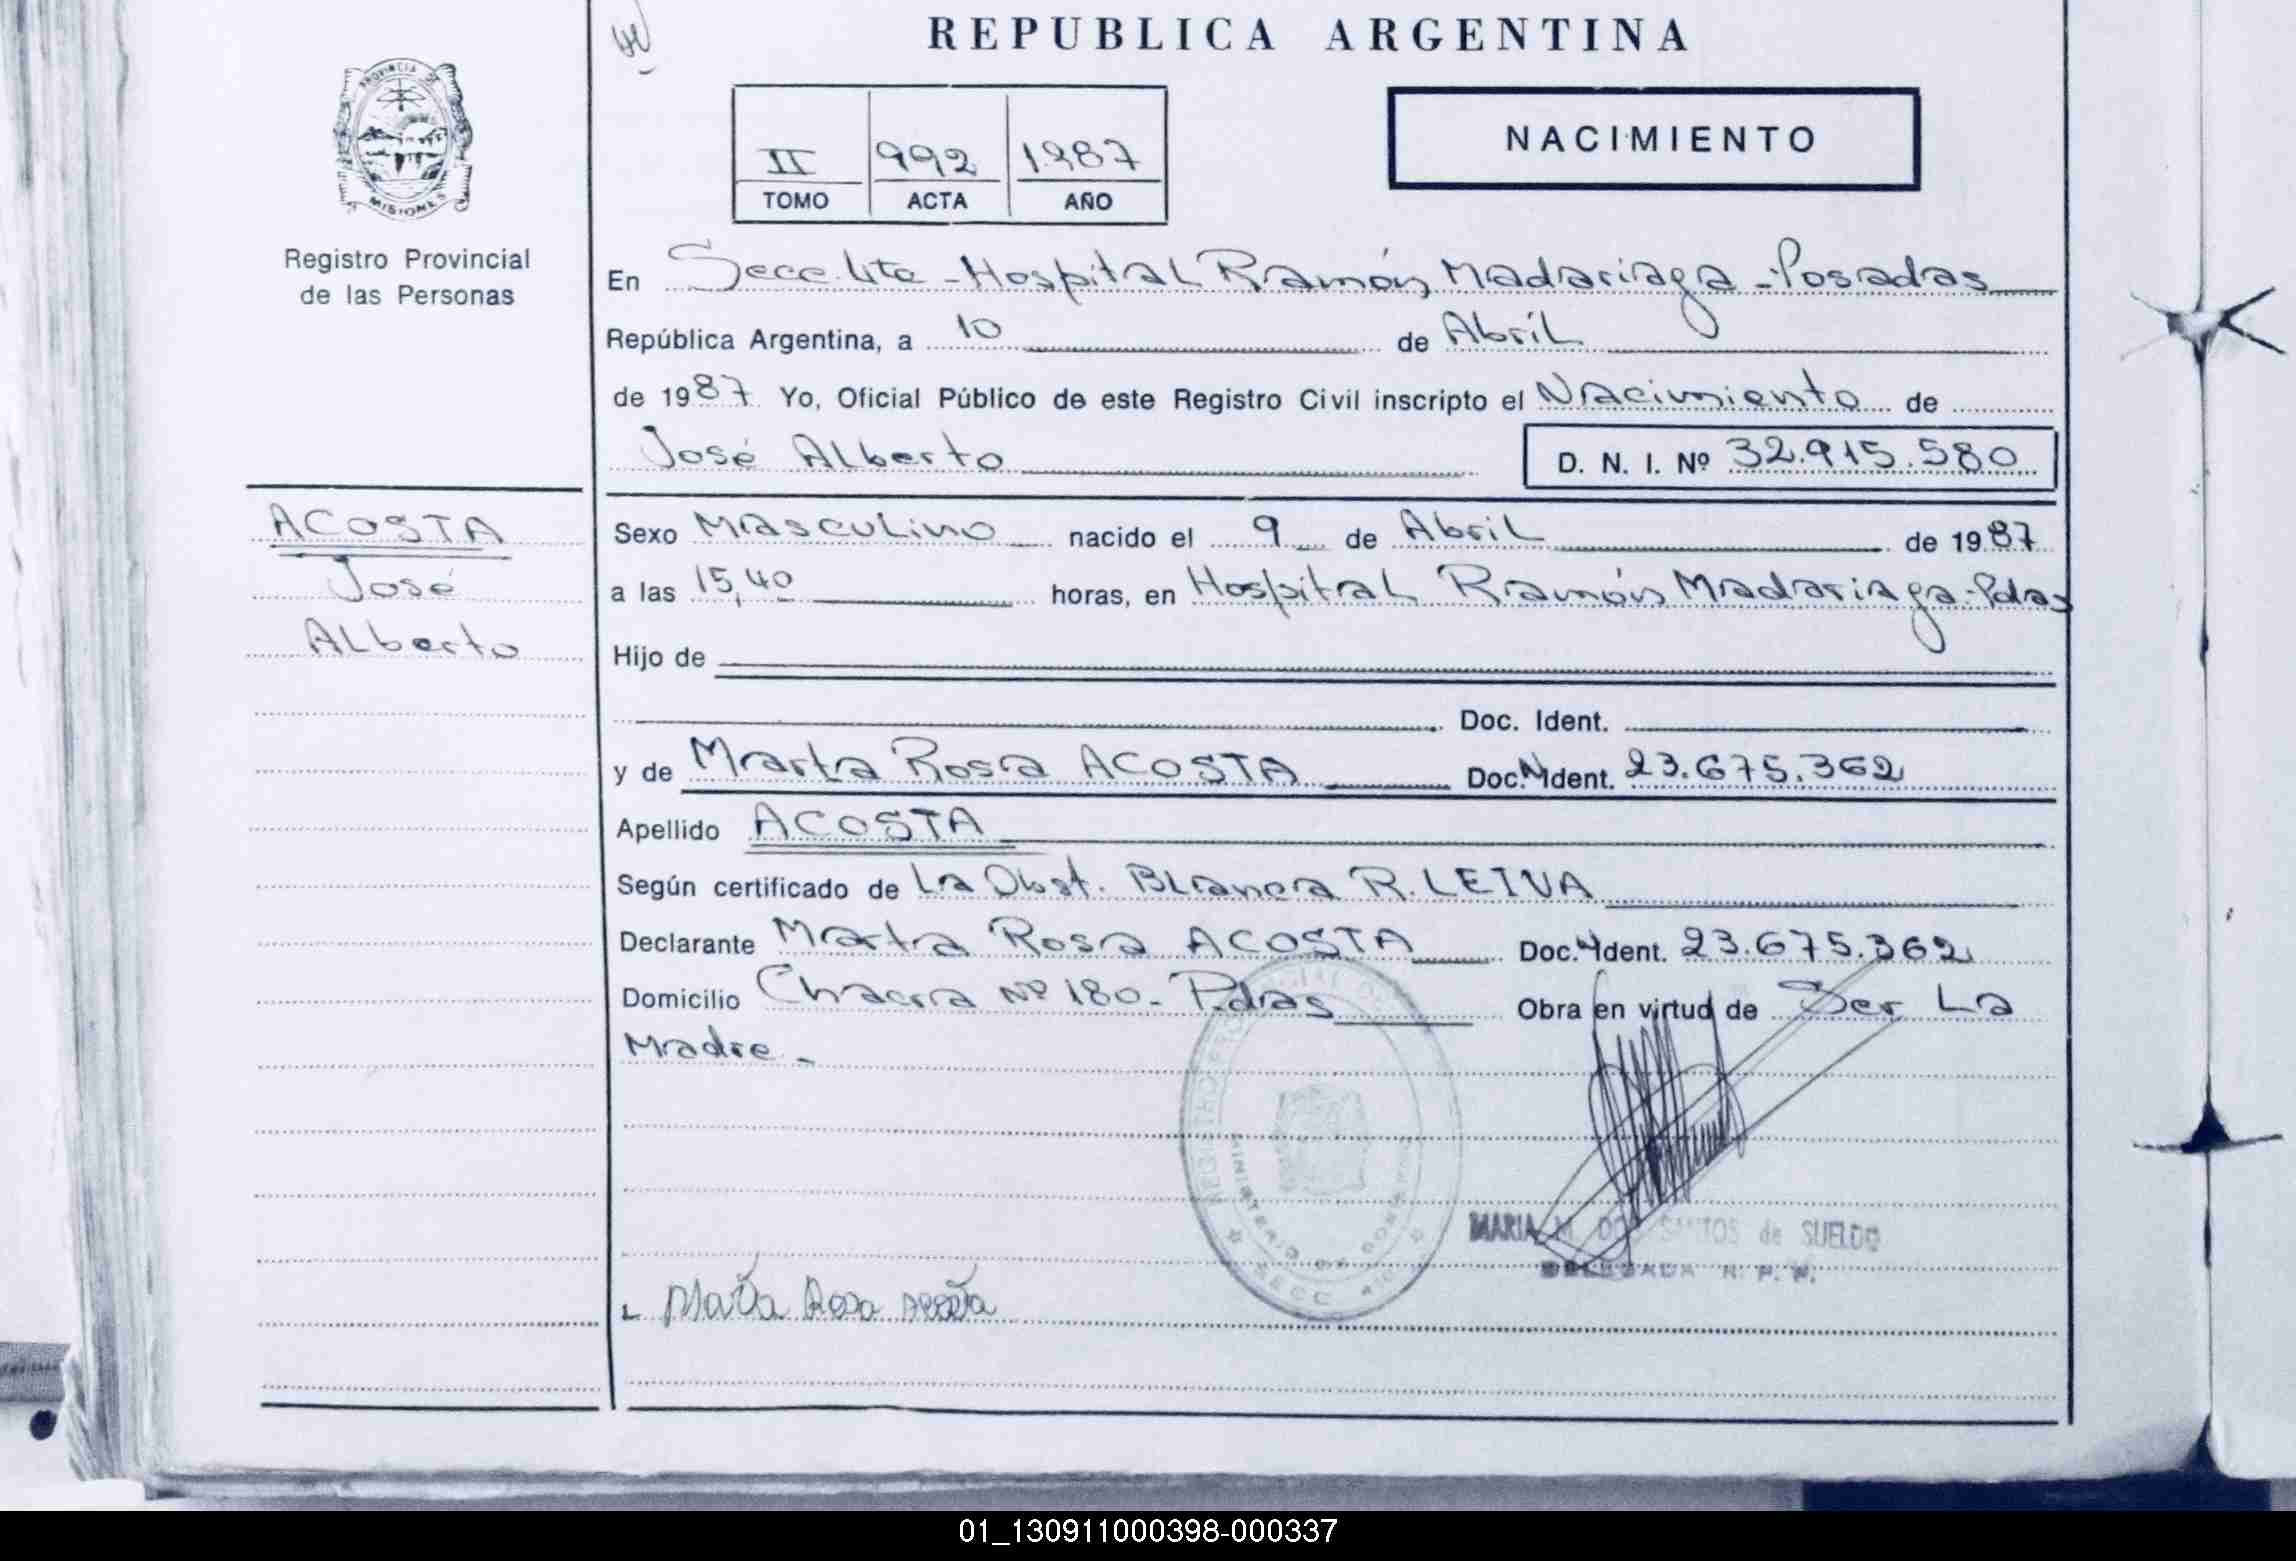 REPUBLICA ARGENTINA
PROVINCIA DE
MISIONES
Registro Provincial
de las Personas
II 992 1987
TOMO ACTA AÑO
NACIMIENTO
En Secc. 4ta - Hospital Ramón Madariaga - Posadas
República Argentina, a 10 de Abril
de 1987 Yo, Oficial Público de este Registro Civil inscripto el Nacimiento de
José Alberto D. N. I. Nº 32.915.580
ACOSTA
José
Alberto
Sexo Masculino nacido el 9 de Abril de 1987
a las 15,40 horas, en Hospital Ramón Madariaga - Pdas
Hijo de
Doc. Ident.
y de Marta Rosa ACOSTA Doc. Ident. 23.675.362
Apellido ACOSTA
Según certificado de La Obst. Blanca R. LEIVA
Declarante Marta Rosa ACOSTA Doc. Ident. 23.675.362
Domicilio Chacra Nº 180 - Pdas Obra en virtud de Ser La
Madre -
MARIA M. DOS SANTOS de SUELDO
DELEGADA R. P. P.
Marta Rosa Acosta
01_130911000398-000337